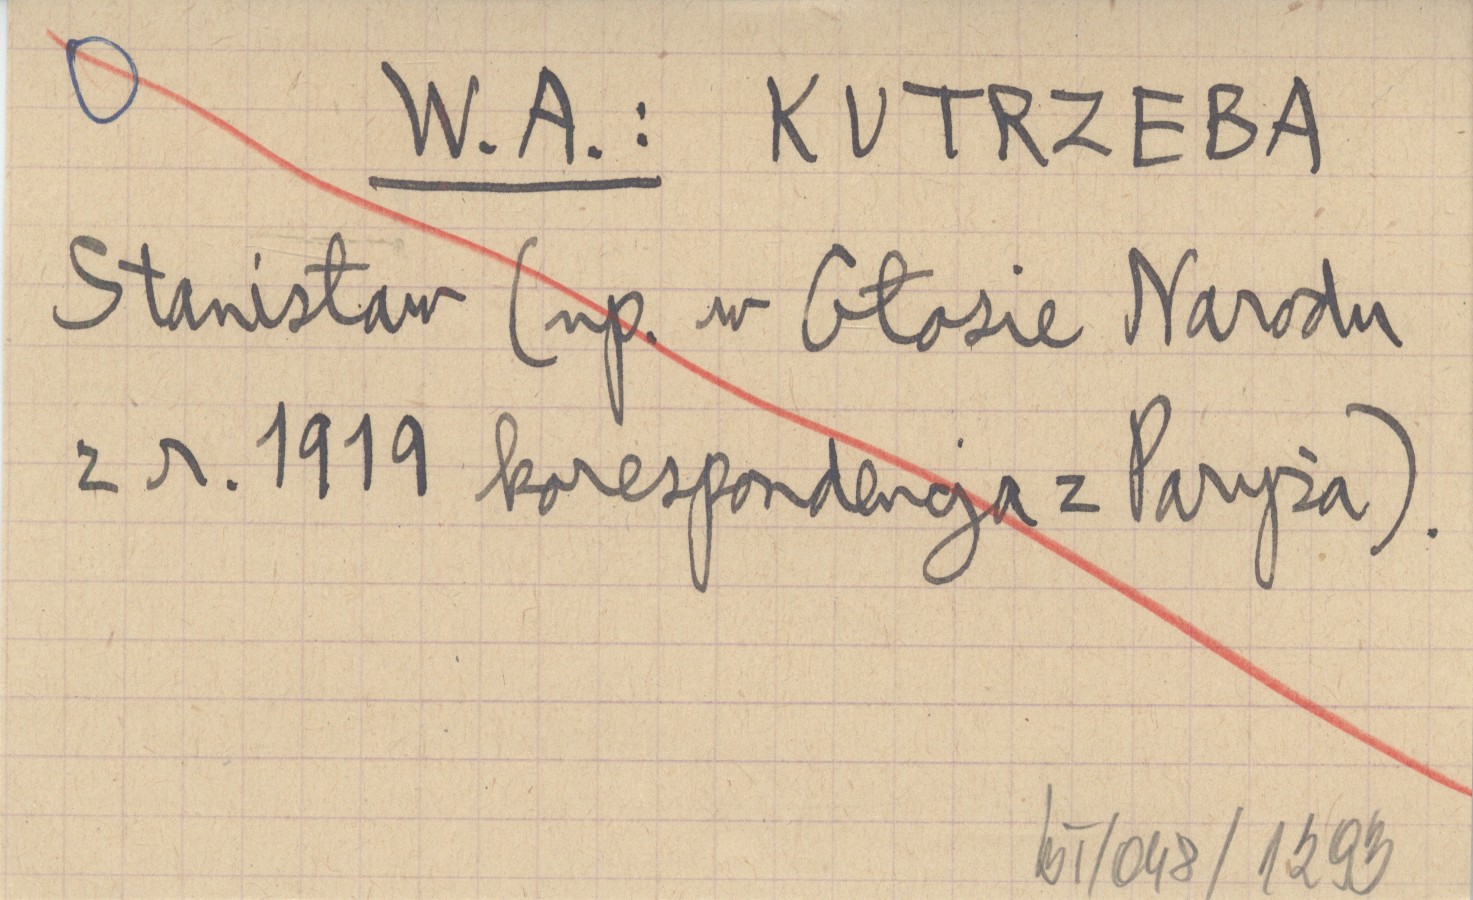 W.A.: KUTRZEBA
Stanisław (np. w Głosie Narodu
z r. 1919 korespondencja z Paryża).
/048/1293